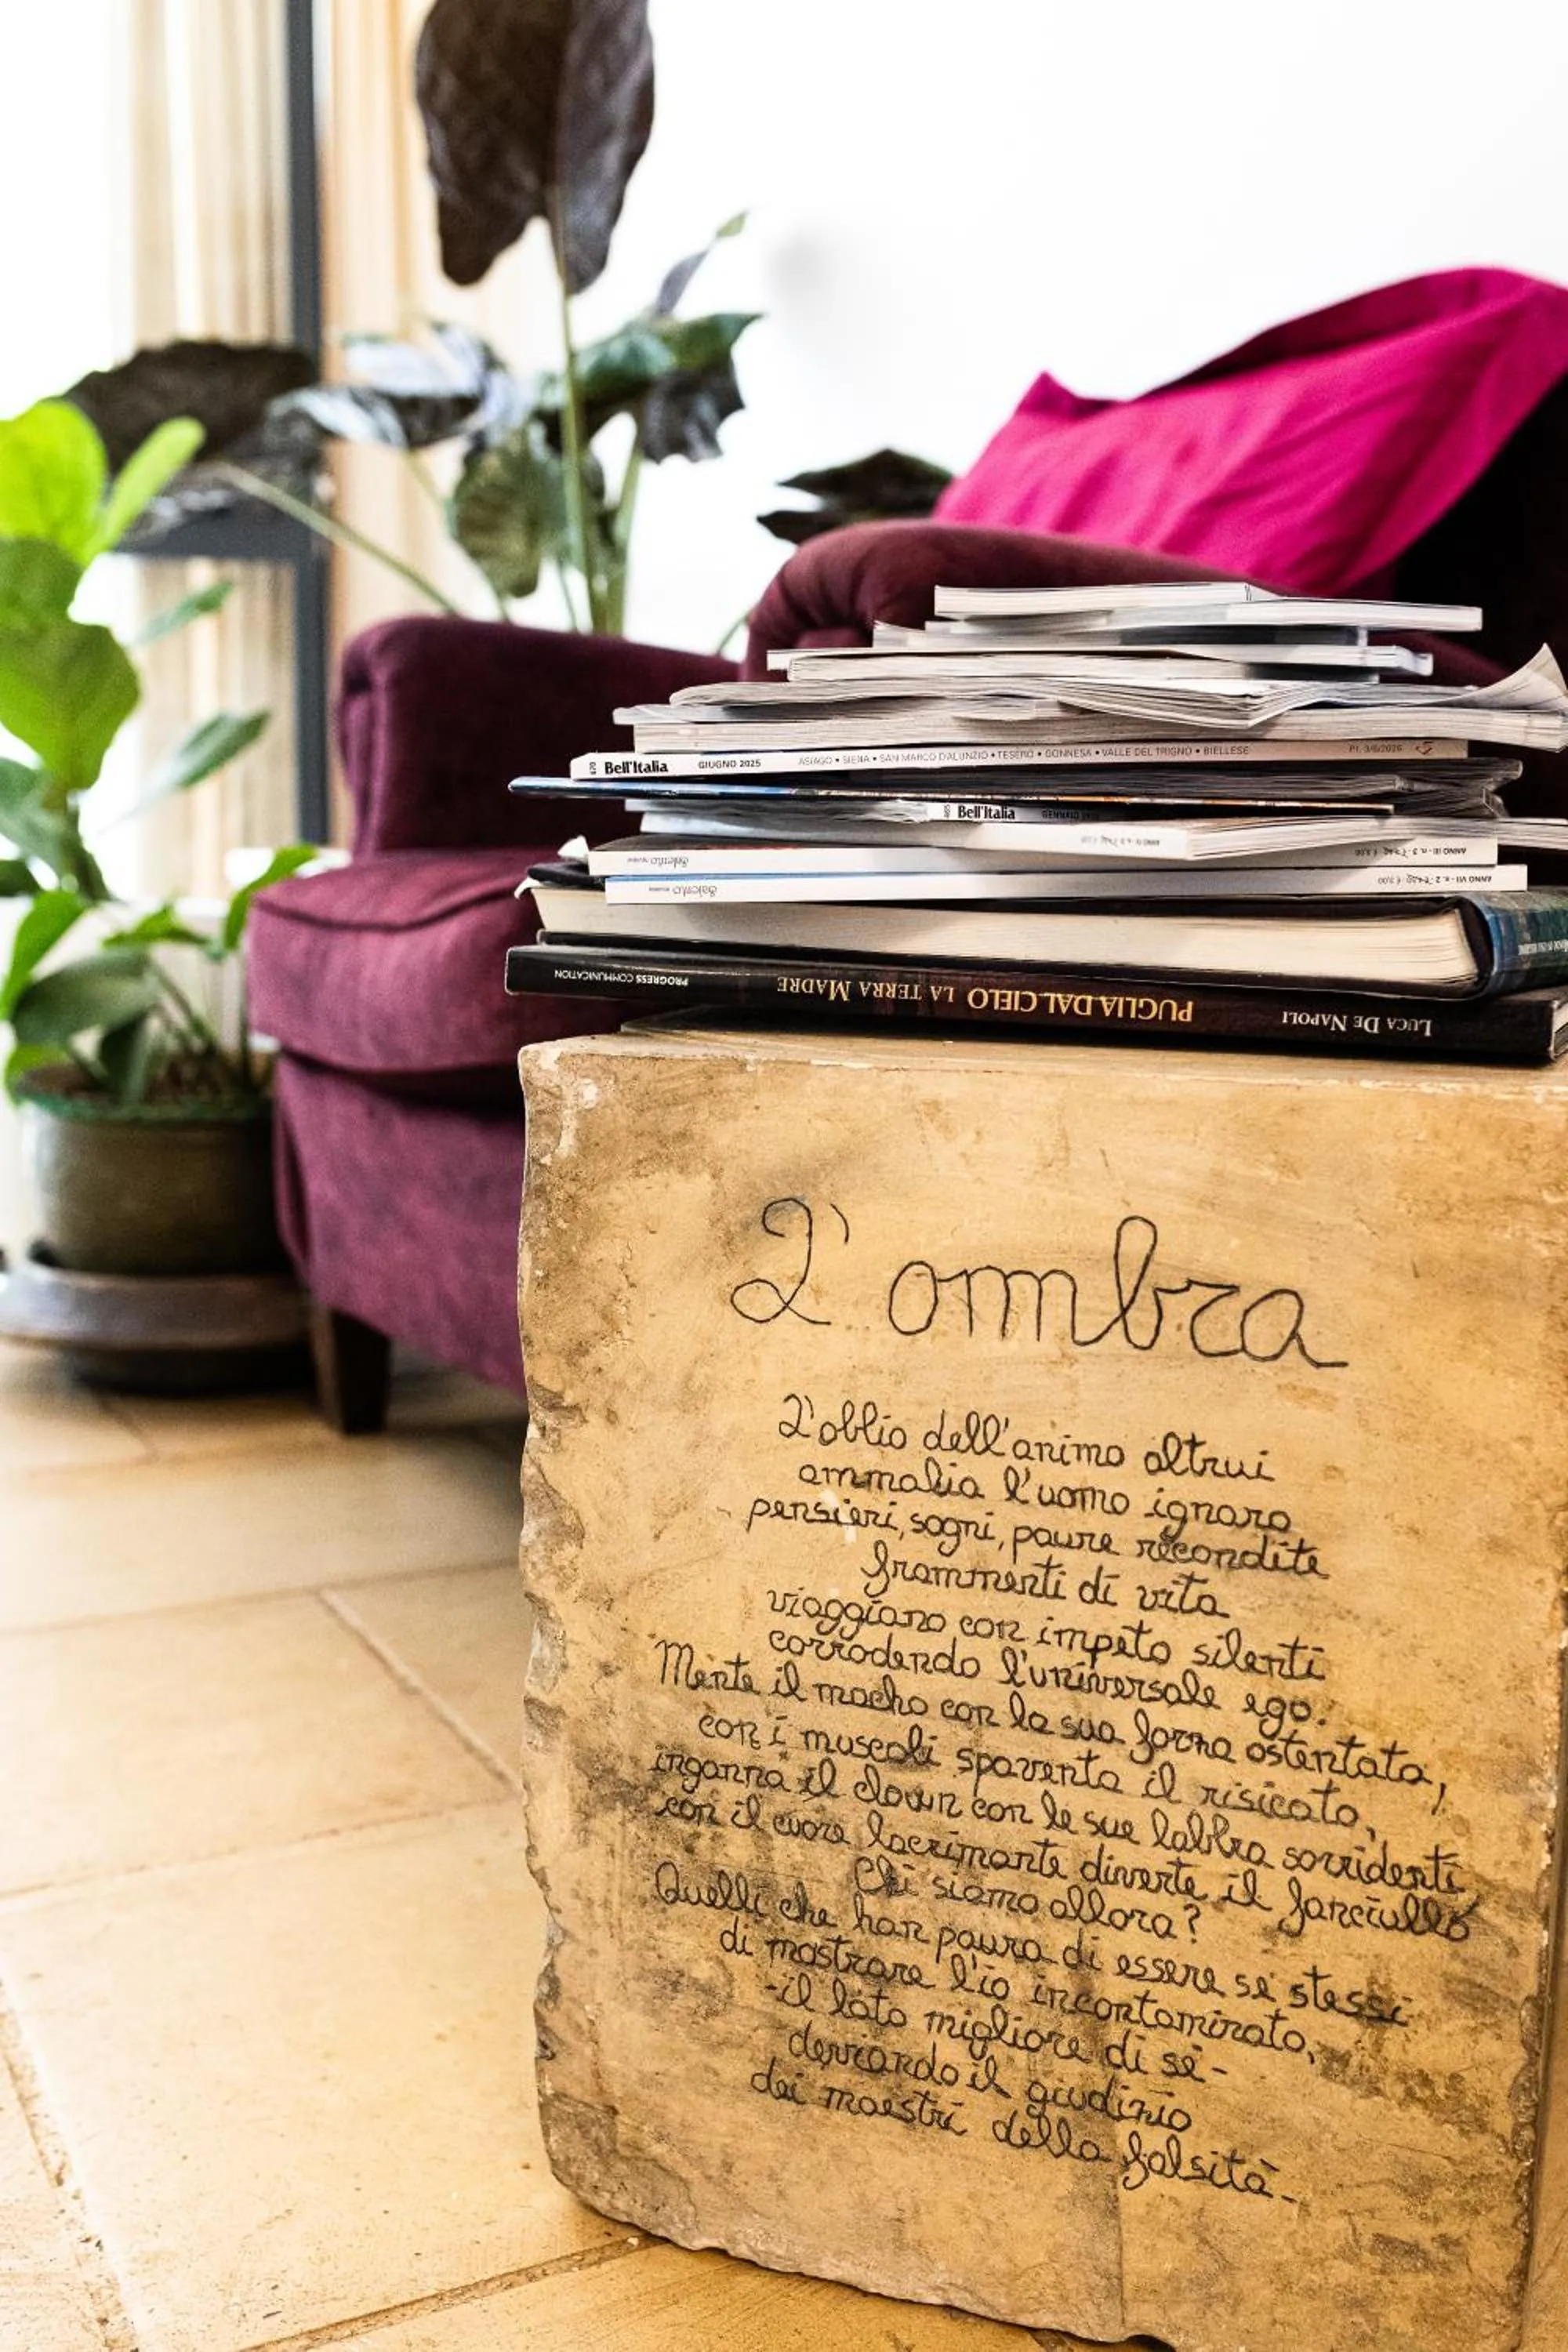 Bell'Italia GIUGNO 2025 ASIAGO • SIENA • SAN MARCO D'ALUNZIO • TESERO • GONNESA • VALLE DEL TRIGNO • BIELLESE
Bell'Italia
Salento review ANNO III - n. 3
Salento review ANNO VII - n. 2
LUCA DE NAPOLI PUGLIA DAL CIELO LA TERRA MADRE PROGRESS COMMUNICATION
L'ombra
L'oblio dell'animo altrui
ammalia l'uomo ignaro
pensieri, sogni, paure recondite
frammenti di vita
viaggiano con impeto silenti
corrodendo l'universale ego.
Mente il macho con la sua forza ostentata,
con i muscoli spaventa il risicato,
inganna il clown con le sue labbra sorridenti,
con il cuore lacrimante diverte il fanciullo
Chi siamo allora?
Quelli che han paura di essere sé stessi
di mostrare l'io incontaminato,
-il lato migliore di sé-
deviando il giudizio
dei maestri della falsità-